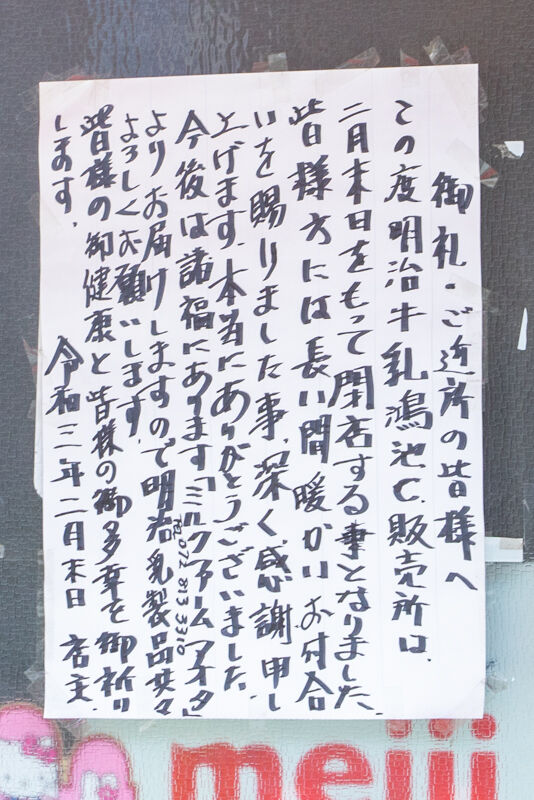 御札・ご近所の皆様へ
この度明治牛乳鴻池C.販売所は、
二月末日をもって閉店する事となりました、
皆様方には長い間暖かいお付合
いを賜りました事、深く感謝申し
上げます、本当にありがとうございました、
今後は諸福にあります「ミルクファームアオタ」
TEL 072 813 3310
よりお届けしますので明治乳製品共々
よろしくお願いします、
皆様の御健康と皆様の御多幸を御祈り
します、
令和三年二月末日 店主、
meiji